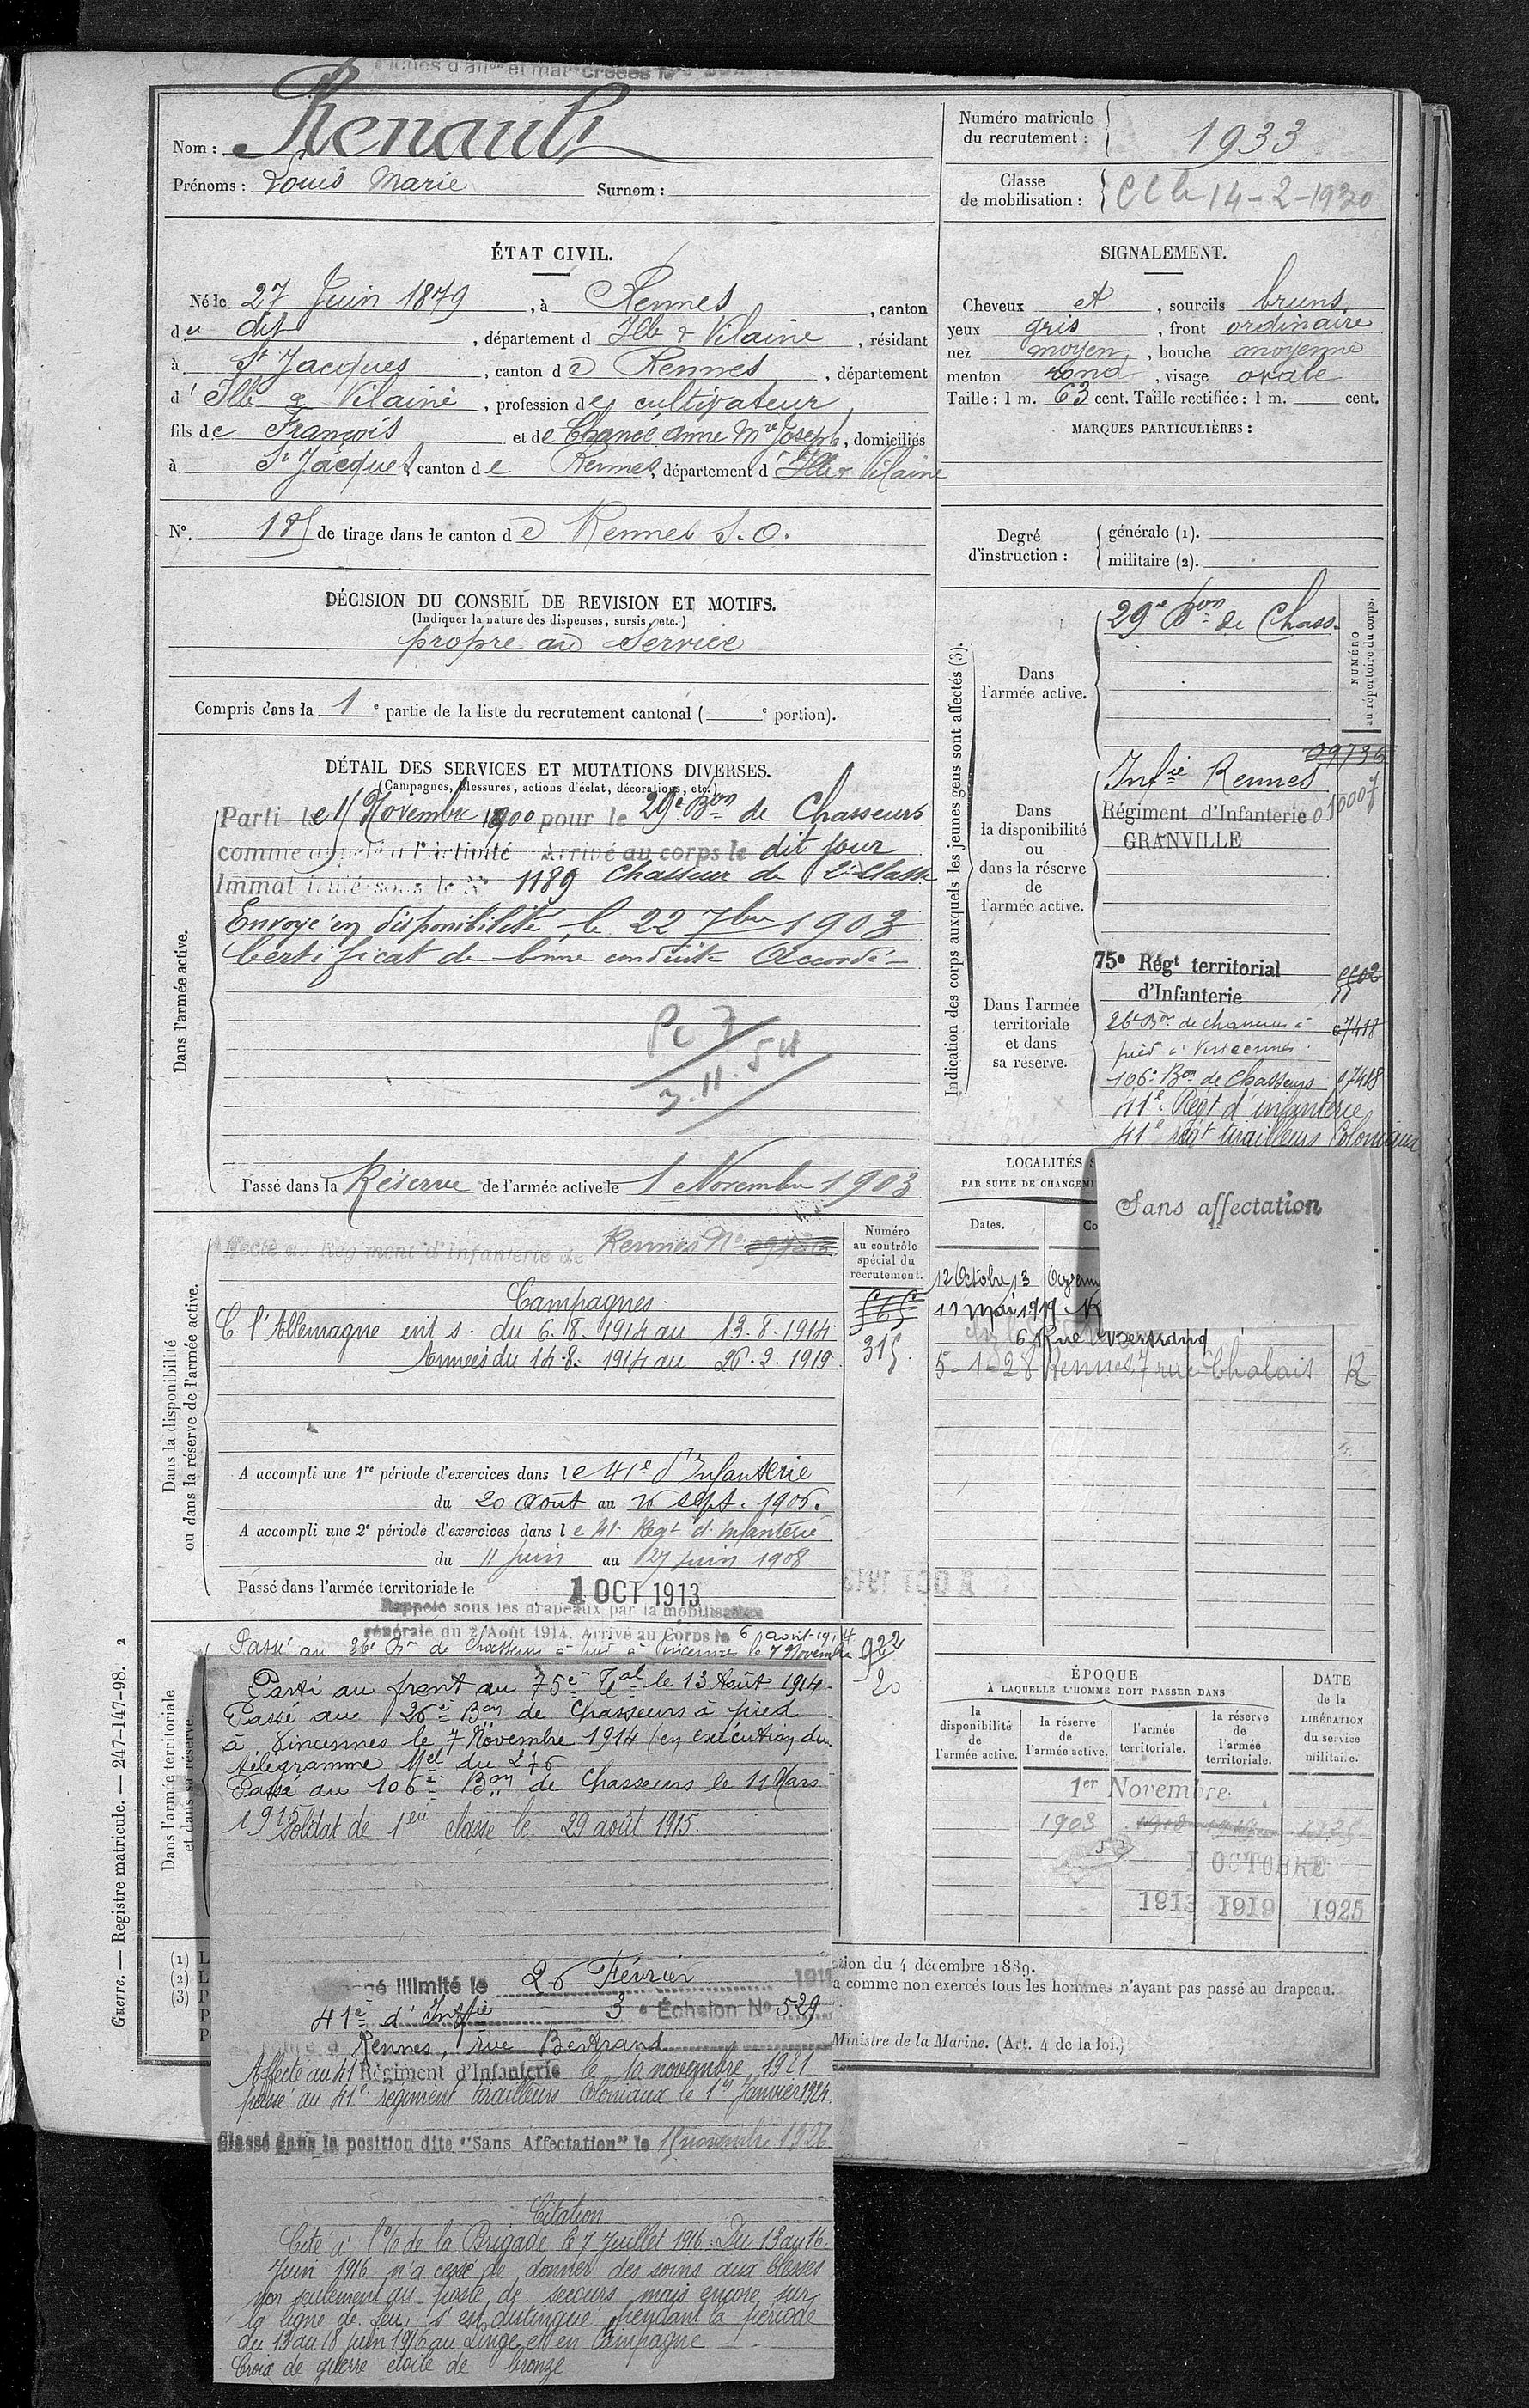 Nom : Renault
Prénoms : Louis Marie Surnom :
Numéro matricule
du recrutement : 1933
Classe
de mobilisation : 14-2-1930
ÉTAT CIVIL.
Né le 27 Juin 1879, à Rennes, canton
du dit, département d Ille & Vilaine, résidant
à St Jacques, canton de Rennes, département
d'Ille & Vilaine, profession de cultivateur,
fils de François et de Chancé Anne Mie Joseph, domiciliés
à St Jacques, canton de Rennes, département d'Ille & Vilaine
No. de tirage dans le canton de Rennes S. O.
DÉCISION DU CONSEIL DE REVISION ET MOTIFS.
(Indiquer la nature des dispenses, sursis, etc.)
propre au service
Compris dans la 1e partie de la liste du recrutement cantonal ( e portion).
SIGNALEMENT.
Cheveux et, sourcils bruns,
yeux gris, front ordinaire
nez moyen, bouche moyenne
menton rond, visage ovale
Taille : 1 m. 63 cent. Taille rectifiée : 1 m. cent.
MARQUES PARTICULIÈRES :
Degré
d'instruction :
générale (1).
militaire (2).
DÉTAIL DES SERVICES ET MUTATIONS DIVERSES.
(Campagnes, blessures, actions d'éclat, décorations, etc.)
Dans l'armée active.
Parti le 15 Novembre 1900 pour le 29e Bon de Chasseurs
comme appelé à l'activité Arrivé au corps le dit jour
Immatriculé sous le No 1189 Chasseur de 2e classe
Envoyé en disponibilité le 22 7bre 1903
Certificat de bonne conduite Accordé
3.11.54
Passé dans la Réserve de l'armée active le 1 Novembre 1903
Indication des corps auxquels les jeunes gens sont affectés (3).
NUMÉRO
au répertoire du corps.
Dans
l'armée active.
29e Bon de Chass.
Dans
la disponibilité
ou
dans la réserve
de
l'armée active.
09736
Infie Rennes
Régiment d'Infanterie 010007
GRANVILLE
Dans l'armée
territoriale
et dans
sa réserve.
75e Régt territorial
d'Infanterie
26e Bon de chasseurs à 07418
pied à Vincennes
106e Bon de Chasseurs 07418
41e Régt d'infanterie
41e régt tirailleurs Coloniaux
Sans affectation
LOCALITÉS
PAR SUITE DE CHANGEM
Dates.
12 Octobre 13
11 Mai 1919
6 Rue Bertrand
5-1-28 Rennes, 7 rue Chalais R
Dans la disponibilité
ou dans la réserve de l'armée active.
Affecté au Régiment d'Infanterie de Rennes No 09736
Numéro
au contrôle
spécial du
recrutement.
315
Campagnes.
C. l'Allemagne int s. du 6.8.1914 au 13.8.1914
Armées du 14.8.1914 au 26.2.1919
A accompli une 1re période d'exercices dans le 41e d'Infanterie
du 20 août au 16 sept. 1906.
A accompli une 2e période d'exercices dans le 41e Regt d'Infanterie
du 11 juin au 27 juin 1908
Passé dans l'armée territoriale le 1 OCT 1913
Dans l'armée territoriale
et dans sa réserve.
Rappelé sous les drapeaux par la mobilisation
générale du 2 Août 1914. Arrivé au Corps le 6 août 1914
Passé au 26e Bon de Chasseurs à pied à Vincennes le 7 Novembre
922
20
Parti au front au 75e Tal le 13 Août 1914
Passé au 26e Bon de Chasseurs à pied
à Vincennes le 7 Novembre 1914 (en exécution du
télégramme Mel du 2 76
Passé au 106e Bon de Chasseurs le 11 Mars
1915 Soldat de 1ère classe le 29 août 1915.
illimité le 26 Février 1919
41e d'Infie 3e Échelon No 529
Rennes, rue Bertrand
Affecté au 41 Régiment d'Infanterie le 10 novembre 1921
passé au 41e régiment tirailleurs Coloniaux le 1er Janvier 1924
Classé dans la position dite "Sans Affectation" le 15 novembre 1926
Citation
Cité à l'o/ de la Brigade le 7 Juillet 1916. Du 13 au 16
Juin 1916 n'a cessé de donner des soins aux blessés
non seulement au poste de secours mais encore sur
la ligne de feu, s'est distingué pendant la période
du 13 au 18 juin 1916 au Linge et en Campagne
Croix de guerre étoile de bronze
ÉPOQUE
À LAQUELLE L'HOMME DOIT PASSER DANS
la
disponibilité
de
l'armée active.
la réserve
de
l'armée active.
l'armée
territoriale.
la réserve
de
l'armée
territoriale.
DATE
de la
LIBÉRATION
du service
militaire.
1er Novembre
1903
1 OCTOBRE
1913 1919 1925
tion du 4 décembre 1889.
a comme non exercés tous les hommes n'ayant pas passé au drapeau.
Ministre de la Marine. (Art. 4 de la loi.)
(1) L
(2) L
(3) P
P
P
Guerre. — Registre matricule. — 247-147-98. 2